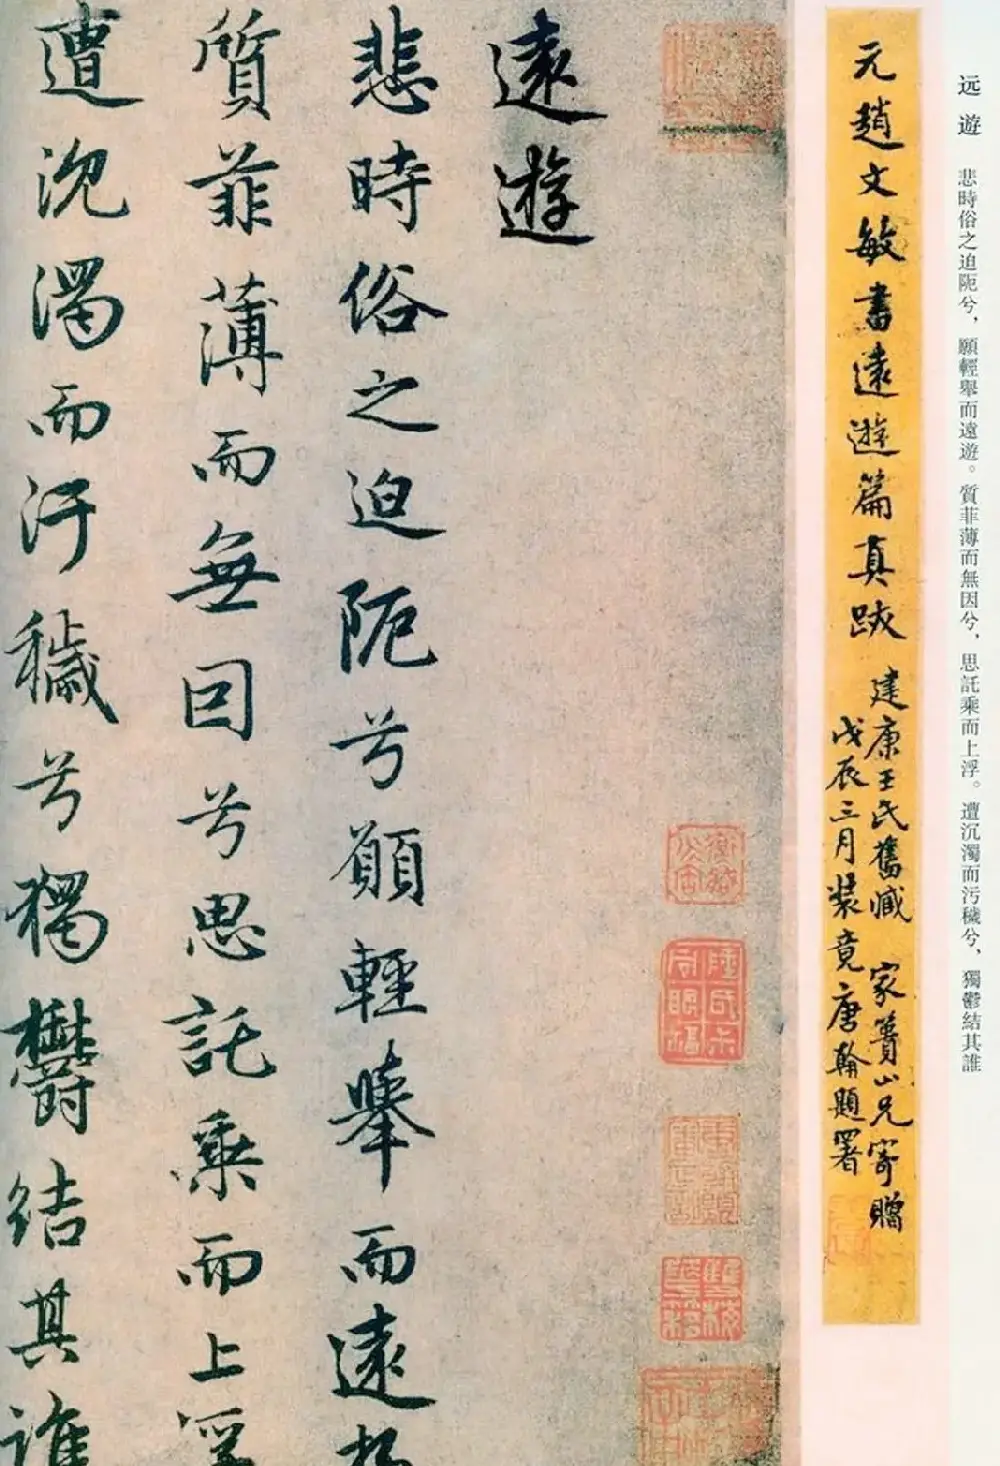 远遊 悲時俗之迫阨兮，願輕舉而遠遊。質菲薄而無因兮，思託乘而上浮。遭沉濁而污穢兮，獨鬱結其誰
元趙文敏書遠遊篇真跡
建康王氏舊臧 家蕢山兄寄贈
戊辰三月裝竟唐翰題署
遠遊
悲時俗之迫阨兮願輕舉而遠
質菲薄而無因兮思託乘而上浮
遭沈濁而汙穢兮獨鬱結其誰